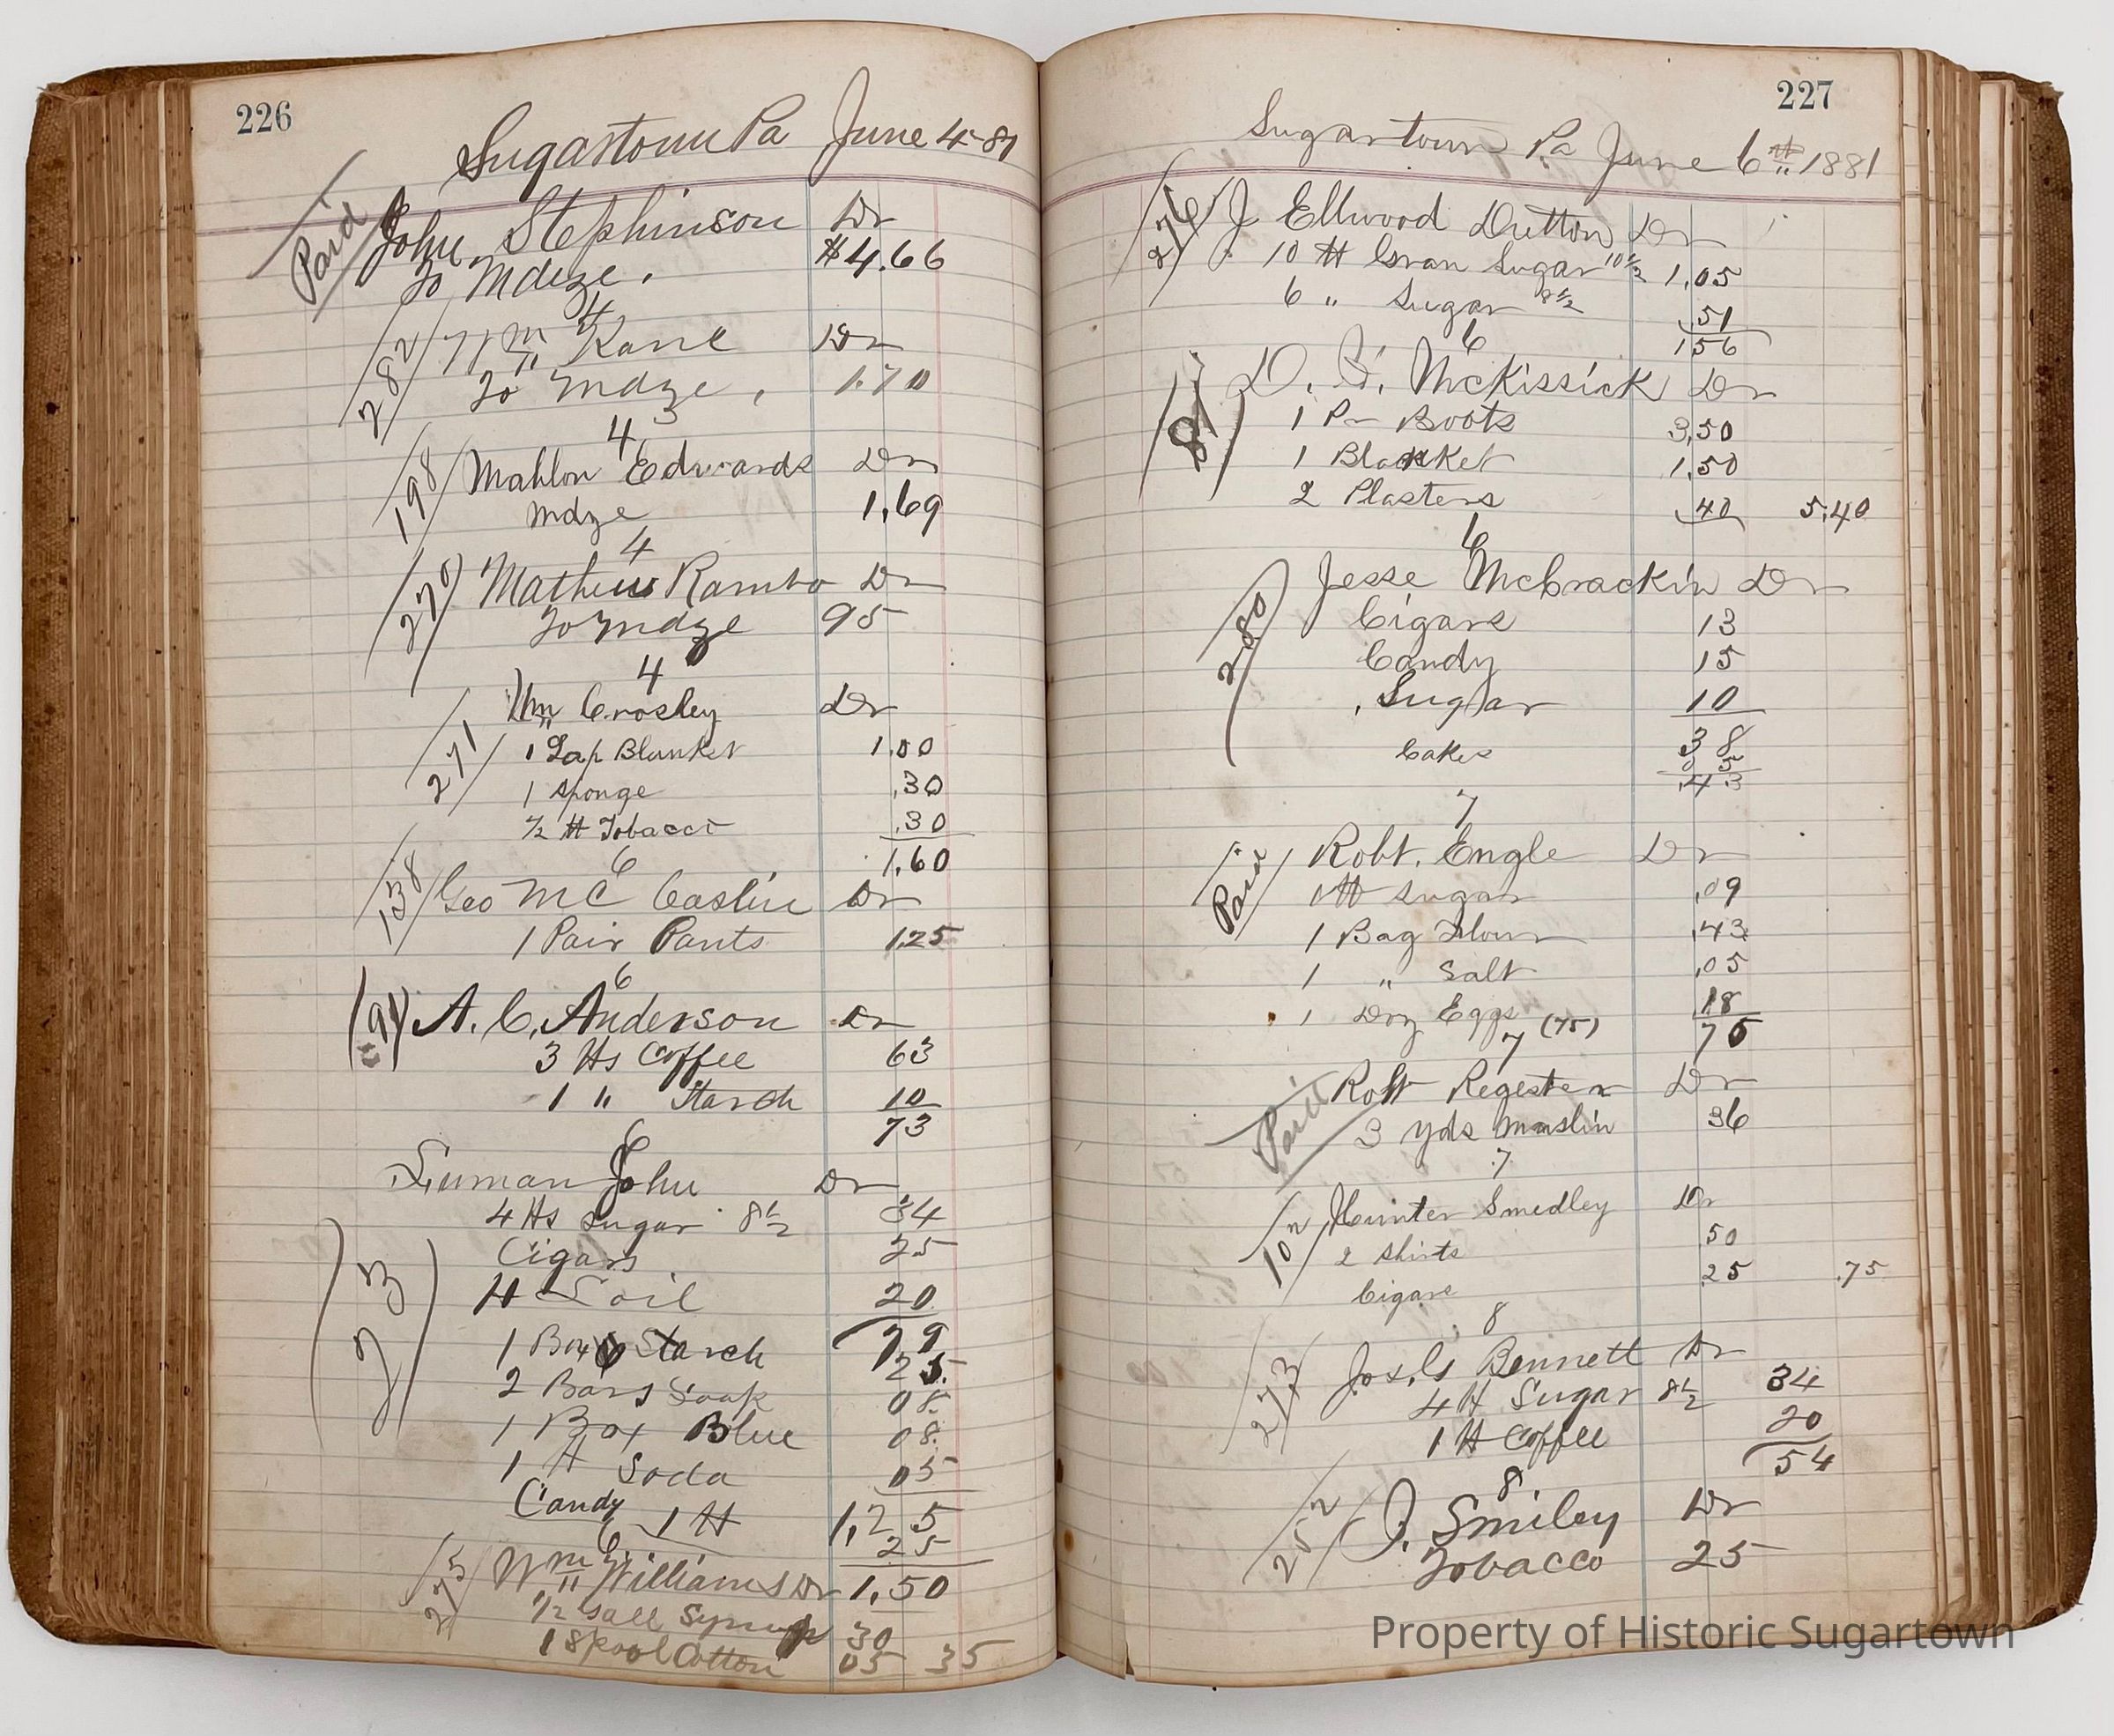 226
Sugartown Pa June 4-81
Paid
John Stephinson Dr
To Mdze. $4.66
4
282 Wm Kane Dr
To Mdze, 1.70
4
198 Mahlon Edwards Dr
Mdze 1.69
4
270 Mathew Rambo Dr
To Mdze 95
4
Wm Crosley Dr
271 1 Lap Blanket 1.00
1 Sponge .30
1/2 # Tobacco .30
1.60
6
138 Geo Mc Caslin Dr
1 Pair Pants 1.25
6
A. C. Anderson Dr
3 #s Coffee 63
1 " Starch 10
73
6
Luman John Dr
4 #s Sugar 8 1/2 34
Cigars 25
Oil 20
79
1 Box Starch 25
2 Bars Soap 08
1 Box Blue 08
1 # Soda 05
1,25
Candy 1 # 25
1,50
6
275 Wm Williams Dr
1/2 Gall Syrup 30
1 Spool Cotton 05 35
227
Sugartown Pa June 6th 1881
276 J Ellwood Dutton Dr
10 # Gran Sugar 10 1/2 1.05
6 " Sugar 8 1/2 .51
156
6
D. McKissick Dr
81 1 Pr Boots 3,50
1 Blanket 1.50
2 Plasters 40 5.40
6
280 Jesse McCrackin Dr
Cigars 13
Candy 15
Sugar 10
38
Cakes 05
.43
7
Paid Robt. Engle Dr
1 # Sugar .09
1 Bag Flour .43
1 " Salt .05
1 Doz Eggs 18
(75) 75
7
Paid Robt Regester Dr
3 yds Muslin 36
7
102 Hunter Smedley Dr
2 Shirts 50
Cigars .25 .75
8
273 Jos. G Bennett Dr
4 # Sugar 8 1/2 34
1 # Coffee 20
54
8
252 J. Smiley Dr
Tobacco 25
Property of Historic Sugartown